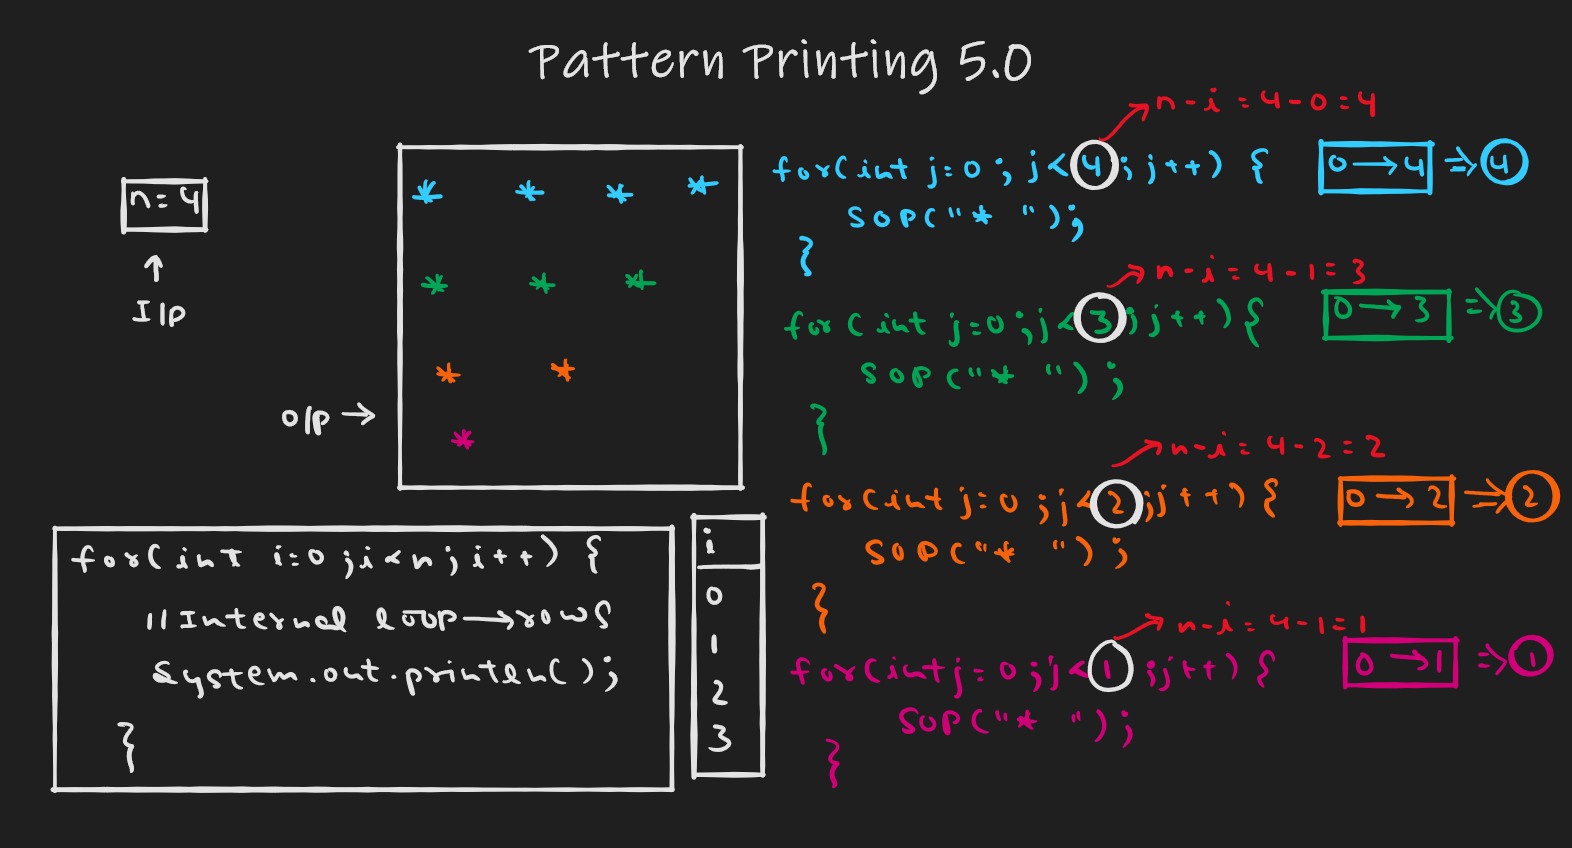 Pattern Printing 5.0
n = 4
I/p
o/p →
* * * *
* * *
* *
*
for(int i=0 ;i<n ; i++) {
//Internal loop→rows
System.out.println();
}
i
0
1
2
3
n-i = 4-0 = 4
for(int j=0 ; j<4 ; j++) { 0→4 ⇒ 4
SOP("* ");
}
n-i = 4-1 = 3
for(int j=0 ;j<3 ; j++) { 0→3 ⇒ 3
SOP("* ");
}
n-i = 4-2 = 2
for(int j=0 ;j<2 ;j++) { 0→2 ⇒ 2
SOP("* ");
}
n-i = 4-1=1
for(int j=0 ;j<1 ;j++) { 0→1 ⇒ 1
SOP("* ");
}